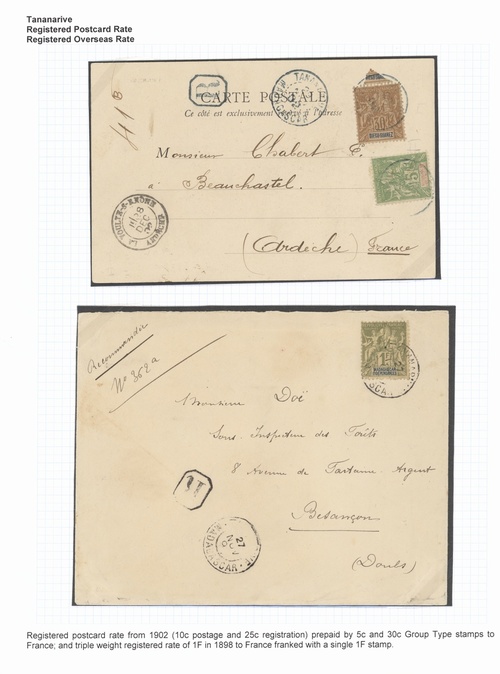 Tananarive
Registered Postcard Rate
Registered Overseas Rate
R
CARTE POSTALE
Ce côté est exclusivement réservé à l'adresse
41 B
Monsieur Chabert E.
à Beauchastel.
(Ardèche) France
LA VOULTE-S-RHONE
28
DEC
Recommandée
N° 362 a
1F
Monsieur Doë
Sous-Inspecteur des Forêts
8 Avenue de Fontaine-Argent
Besançon
(Doubs)
R
MADAGASCAR
27
NOV
Registered postcard rate from 1902 (10c postage and 25c registration) prepaid by 5c and 30c Group Type stamps to
France; and triple weight registered rate of 1F in 1898 to France franked with a single 1F stamp.